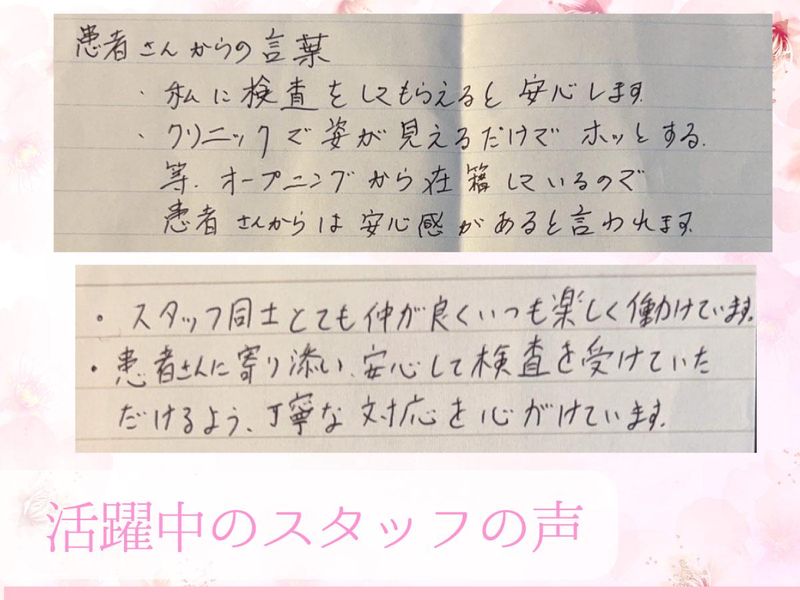 患者さんからの言葉
・私に検査をしてもらえると安心します。
・クリニックで姿が見えるだけでホッとする。
等.オープニングから在籍しているので
患者さんからは安心感があると言われます。
・スタッフ同士とても仲が良くいつも楽しく働けています。
・患者さんに寄り添い、安心して検査を受けていた
だけるよう、丁寧な対応を心がけています。
活躍中のスタッフの声